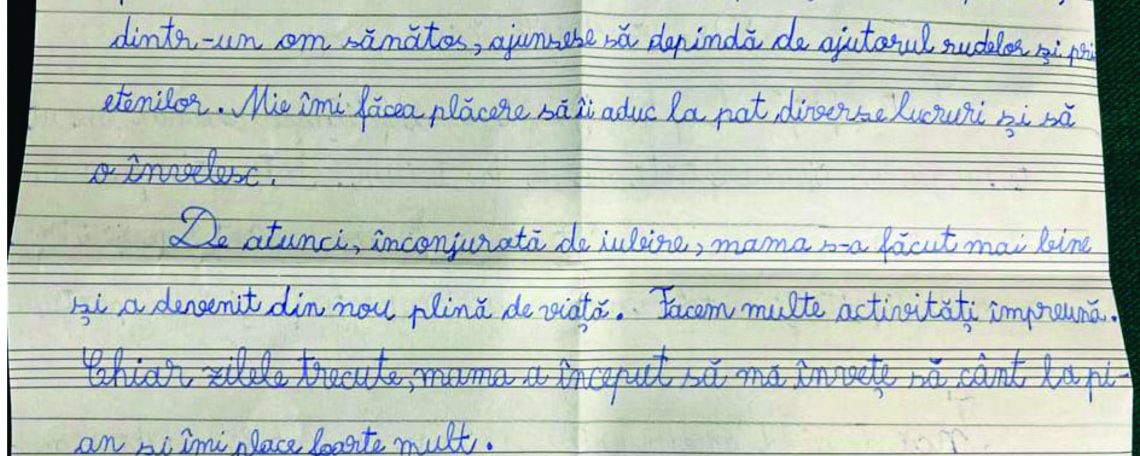 dintr-un om sănătos, ajunsese să depindă de ajutorul rudelor și pri
etenilor. Mie îmi făcea plăcere să îi aduc la pat diverse lucruri și să
o învelesc.
De atunci, înconjurată de iubire, mama s-a făcut mai bine
și a devenit din nou plină de viață. Facem multe activități împreună.
Chiar zilele trecute, mama a început să mă învețe să cânt la pi-
an și îmi place foarte mult.